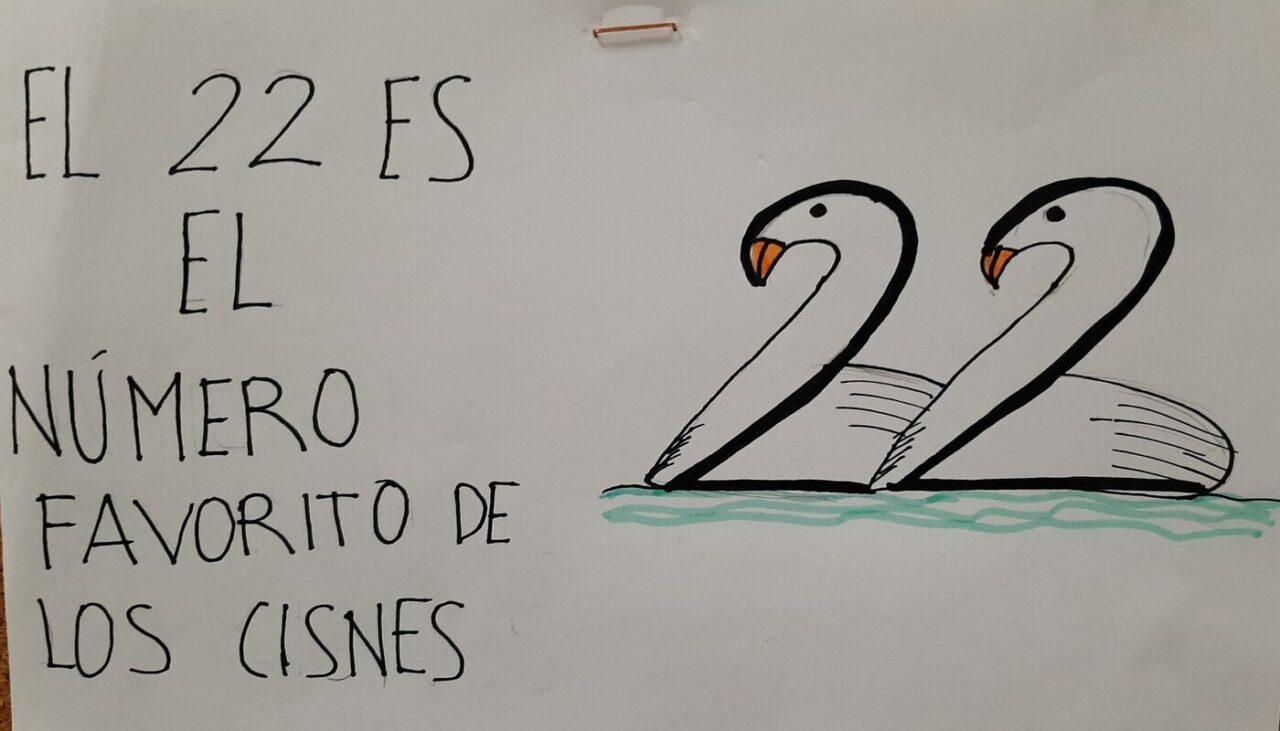 EL 22 ES
EL
NÚMERO
FAVORITO DE
LOS CISNES
22